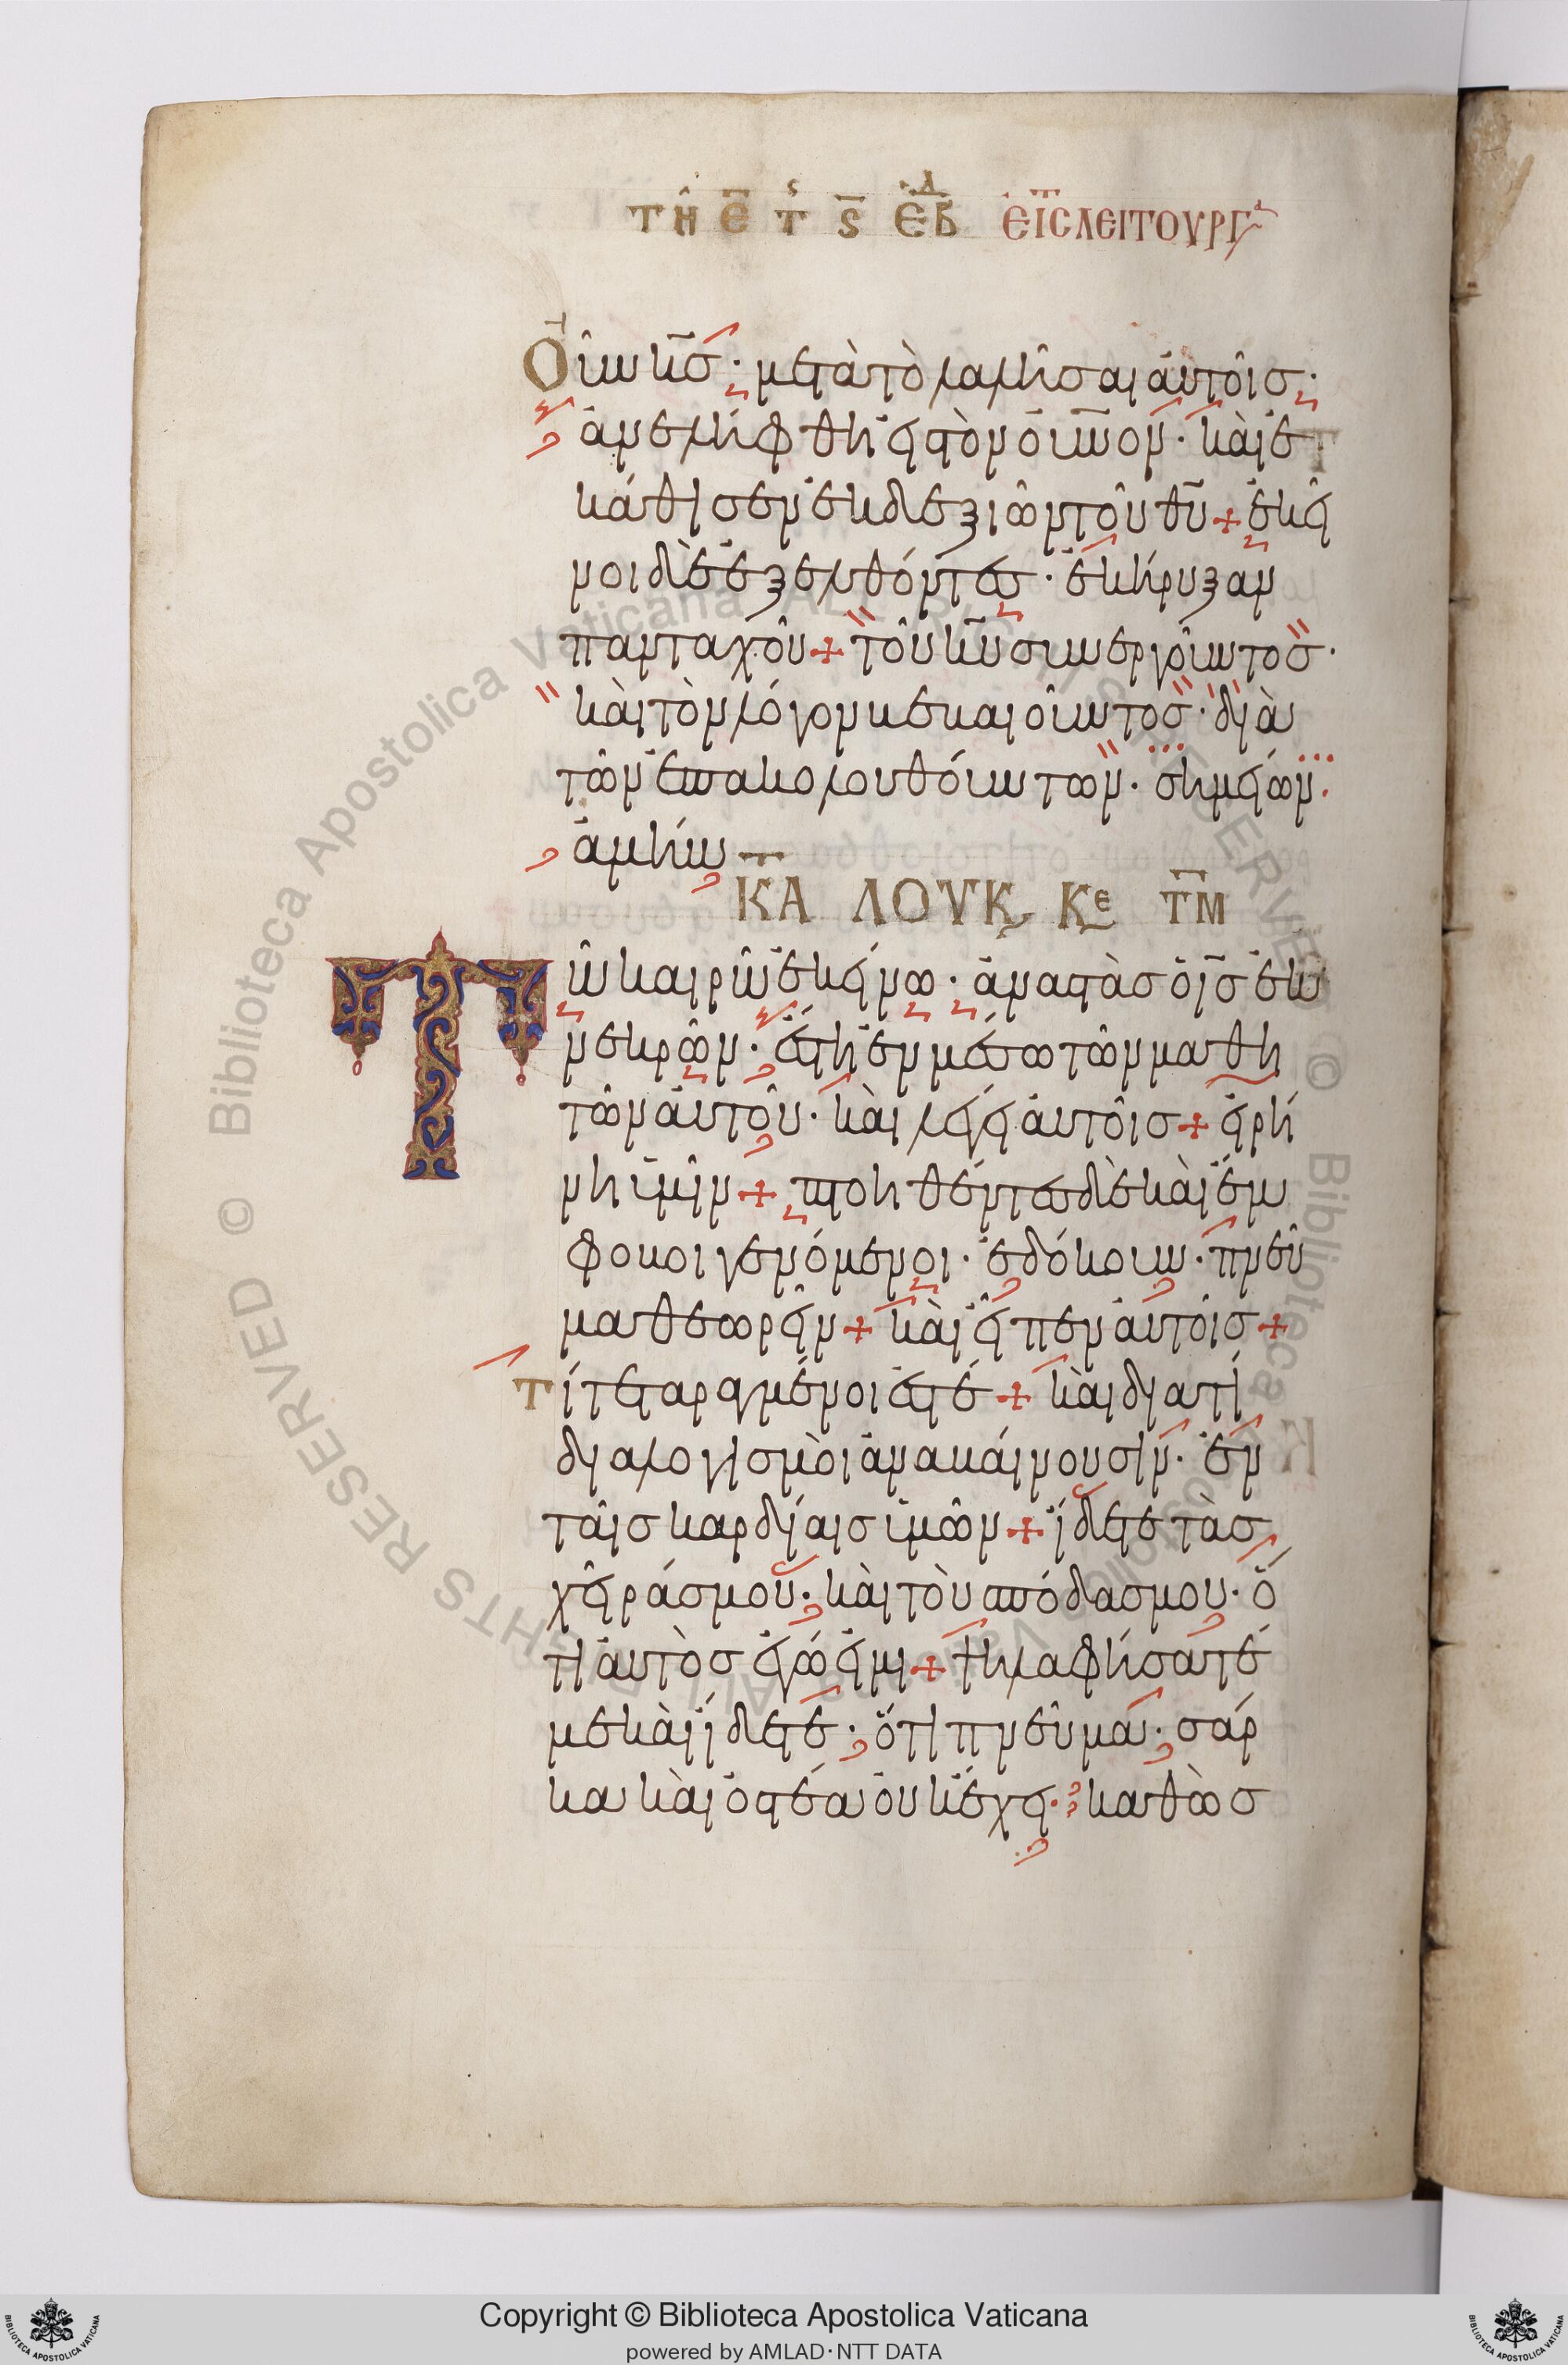 τῆ ε̄ τ ς̄ ἑβδ εἰς λειτουργ
Ὁ οὖν κ̄ς· μετὰ τὸ λαλῆσαι αὐτοῖς·
ἀνελήφθη εἰς τὸν οὐνον· καὶ ἐ
κάθισεν ἐκ δεξιῶν τοῦ θ̄υ + ἐκεῖ
νοι δὲ ἐξελθόντες· ἐκήρυξαν
πανταχοῦ + τοῦ κ̄υ συνεργοῦντος·
καὶ τὸν λόγον βεβαιοῦντος· διὰ
τῶν ἐπακολουθούντων· σημείων·
ἀμήν
Κ̄Α ΛΟΥΚ ΚΕ Τ̄Μ
Τῶ καιρῶ ἐκείνω· ἀναστὰς ὁ ῑς ἐκ
νεκρῶν· ἔστη ἐν μέσω τῶν μαθη
τῶν αὐτοῦ· καὶ λέγει αὐτοῖς + εἰρή
νη ὑμῖν + πτοηθέντες δὲ καὶ ἔμ
φοβοι γενόμενοι· ἐδόκουν· πνεῦ
μα θεωρεῖν + καὶ εἶπεν αὐτοῖς +
Τί τεταραγμένοι ἐστέ + καὶ διατί
διαλογισμοὶ ἀναβαίνουσιν· ἐν
ταῖς καρδίαις ὑμῶν + ἴδετε τὰς
χεῖράς μου· καὶ τοὺς πόδας μου· ὅ
τι αὐτὸς ἐγώ εἰμι + ψηλαφήσατέ
με καὶ ἴδετε· ὅτι πνεῦμα· σάρ
κα καὶ ὀστέα οὐκ ἔχει· καθὼς
Copyright © Biblioteca Apostolica Vaticana
powered by AMLAD·NTT DATA